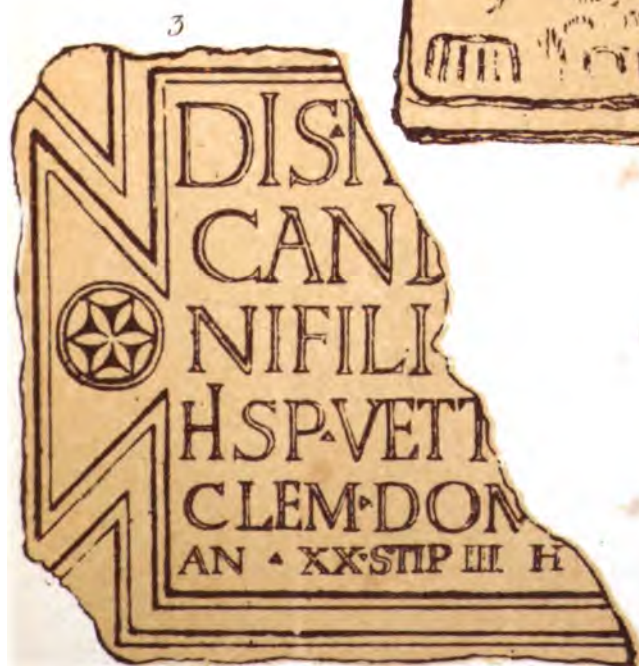 3
DIS·M
CAND
NIFILI
HSP·VETT
CLEM·DOM
AN · XX·STIP III H